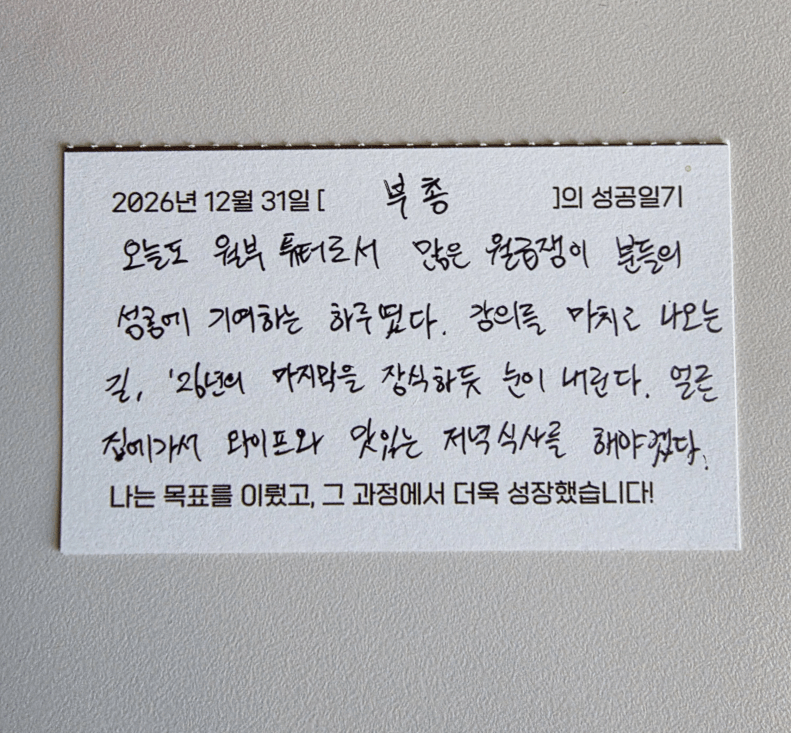 2026년 12월 31일 [ 부총 ]의 성공일기
오늘도 월부 튜터로서 많은 월급쟁이 분들의
성공에 기여하는 하루였다. 강의를 마치고 나오는
길, '26년의 마지막을 장식하듯 눈이 내린다. 얼른
집에가서 와이프와 맛있는 저녁식사를 해야겠다.
나는 목표를 이뤘고, 그 과정에서 더욱 성장했습니다!